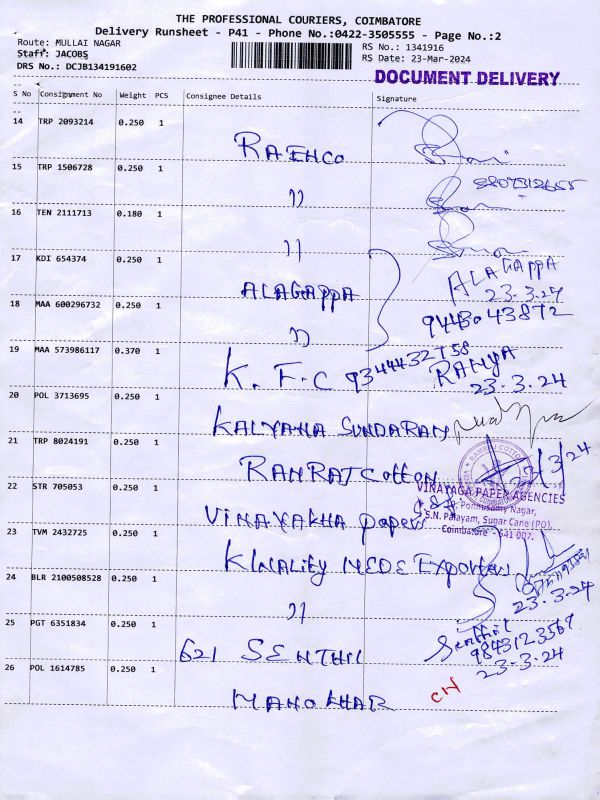 THE PROFESSIONAL COURIERS, COIMBATORE
Delivery Runsheet - P41 - Phone No.:0422-3505555 - Page No.:2
Route: MULLAI NAGAR
Staff: JACOBS
DRS No.: DCJB134191602
RS No.: 1341916
RS Date: 23-Mar-2024
DOCUMENT DELIVERY
S No Consignment No Weight PCS Consignee Details Signature
14 TRP 2093214 0.250 1
RAEHCO
15 TRP 1506728 0.250 1
"
16 TEN 2111713 0.180 1
"
17 KDI 654374 0.250 1
ALAGAPPA
ALAGAPPA
23.3.24
18 MAA 600296732 0.250 1
"
19 MAA 573986117 0.370 1
K.F.C 9344432758
RAMYA
23.3.24
20 POL 3713695 0.250 1
KALYANA SUNDARAN
21 TRP 8024191 0.250 1
RAMRAJ Cotton
22 STR 705053 0.250 1
VINAYAKHA papers
RAMRAJ COTTON
VINAYAGA PAPER AGENCIES
Ponnusamy Nagar,
S.N. Palayam, Sugar Cane (PO),
Coimbatore - 641 007.
23 TVM 2432725 0.250 1
Exporters
24 BLR 2100508528 0.250 1
"
23.3.24
25 PGT 6351834 0.250 1
621 SENTHIL
Senthil
9843123567
23-3-24
26 POL 1614785 0.250 1
MANOKHAR
CN